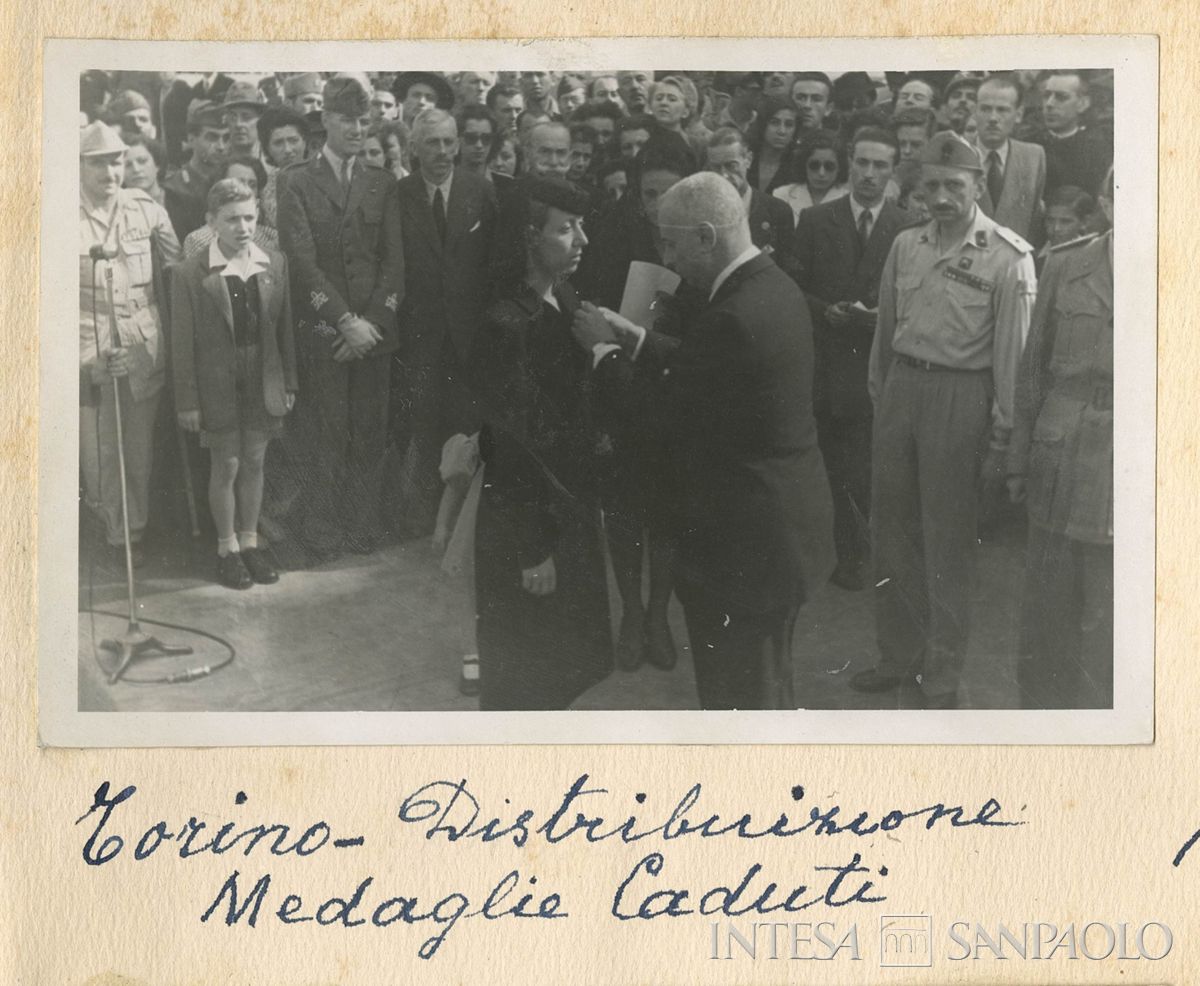 Torino - Distribuizione
Medaglie Caduti
INTESA SANPAOLO